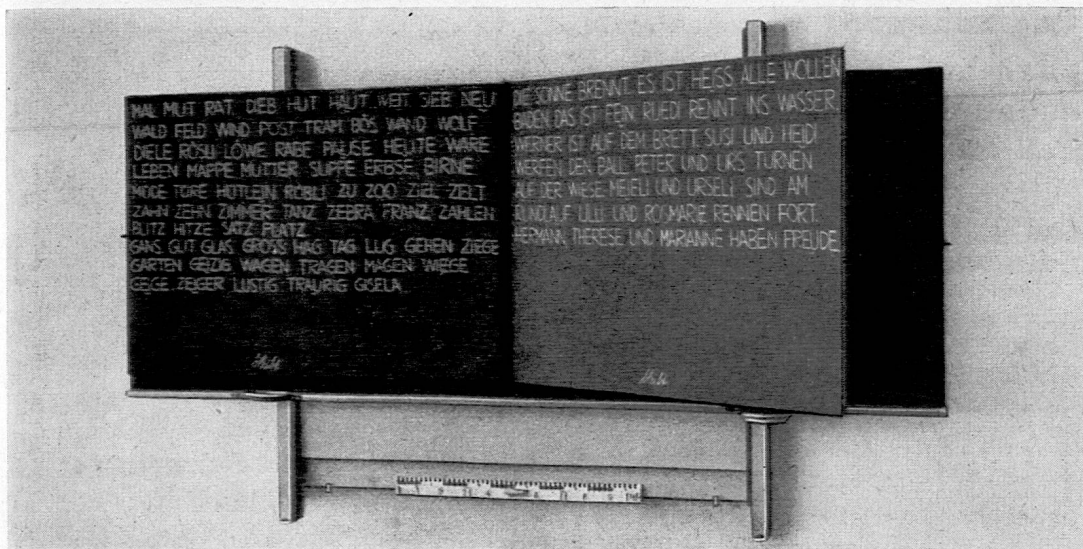 MAL MUT RAT DIEB HUT HAUT WEIT SIEB NEU
WALD FELD WIND POST TRAM BÖS WAND WOLF
DIELE RÖSLI LÖWE RABE PAUSE HEUTE WARE
LEBEN MAPPE MUTTER SUPPE ERBSE BIRNE
MODE TORE HÜTLEIN RÖBLI ZU ZOO ZIEL ZELT
ZAHN ZEHN ZIMMER TANZ ZEBRA FRANZ ZAHLEN
BLITZ HITZE SATZ PLATZ
GANS GUT GLAS GROSS HAG TAG LUG GEHEN ZIEGE
GARTEN GEIZIG WAGEN TRAGEN MAGEN WIEGE
GEIGE ZEIGER LUSTIG TRAURIG GISELA
DIE SONNE BRENNT. ES IST HEISS ALLE WOLLEN
BADEN. DAS IST FEIN. RUEDI RENNT INS WASSER.
WERNER IST AUF DEM BRETT. SUSI UND HEIDI
WERFEN DEN BALL. PETER UND URS TURNEN
AUF DER WIESE. MEIELI UND URSELI SIND AM
RUNDLAUF. LILLI UND ROSMARIE RENNEN FORT.
HERMANN, THERESE UND MARIANNE HABEN FREUDE.